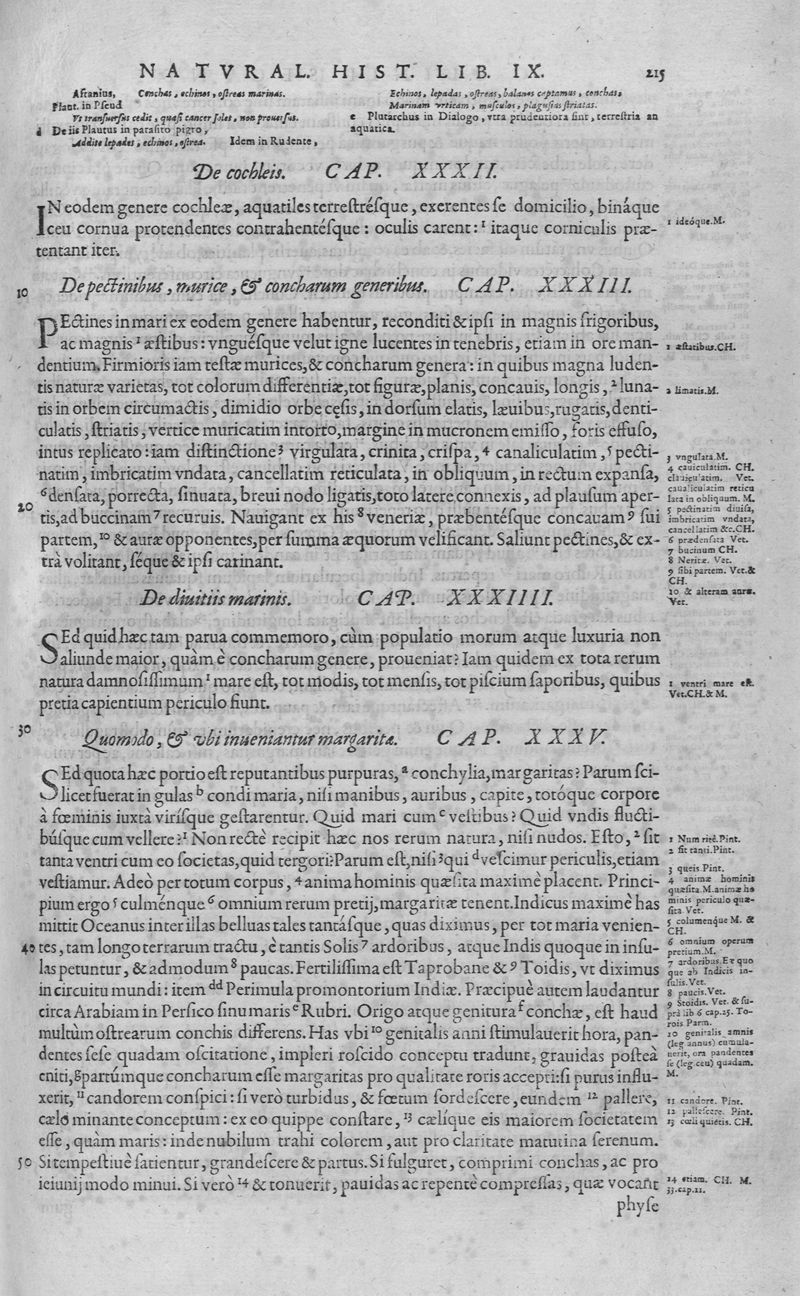 NATVRAL. HIST. LIB. IX. 215
Afranius, Conchas, echinos, ostreas marinas.
Plaut. in Pseud
Vt transuersus cedit, quasi cancer solet, non prouersus.
d De iis Plautus in parasito pigro,
Addite lepades, echinos, ostrea. Idem in Rudente,
Echinos, lepadas, ostreas, balanos captamus, conchas,
Marinam vrticam, musculos, plagusias striatas.
e Plutarchus in Dialogo, vtra prudentiora sint, terrestria an
aquatica.
De cochleis. CAP. XXXII.
IN eodem genere cochleæ, aquatiles terrestrésque, exerentes se domicilio, bináque
ceu cornua protendentes contrahentésque: oculis carent:¹ itaque corniculis præ-
tentant iter.
1 ideóque.M.
10 De pectinibus, murice, & concharum generibus. CAP. XXXIII.
PEctines in mari ex eodem genere habentur, reconditi & ipsi in magnis frigoribus,
ac magnis¹ æstibus: vnguésque velut igne lucentes in tenebris, etiam in ore man-
dentium. Firmioris iam testæ murices, & concharum genera: in quibus magna luden-
tis naturæ varietas, tot colorum differentiæ, tot figuræ, planis, concauis, longis,² luna-
tis in orbem circumactis, dimidio orbe cęsis, in dorsum elatis, læuibus, rugatis, denti-
culatis, striatis, vertice muricatim intorto, margine in mucronem emisso, foris effuso,
intus replicato: iam distinctione³ virgulata, crinita, crispa,⁴ canaliculatim,⁵ pecti-
natim, imbricatim vndata, cancellatim reticulata, in obliquum, in rectum expansa,
⁶densata, porrecta, sinuata, breui nodo ligatis, toto latere connexis, ad plausum aper-
20 tis, ad buccinam⁷ recuruis. Nauigant ex his⁸ veneriæ, præbentésque concauam⁹ sui
partem,¹⁰ & auræ opponentes, per summa æquorum velificant. Saliunt pectines, & ex-
trà volitant, séque & ipsi carinant.
1 æstatibus.CH.
2 limatis.M.
3 vngulata.M.
4 cauiculatim. CH.
clauicu'atim. Vet.
canaliculatim reticu
lata in obliquum. M.
5 pectinatim diuisa,
imbricatim vndata,
cancellatim &c.CH.
6 prædensata Vet.
7 bucinum CH.
8 Neritæ. Vet.
9 sibi partem. Vet.&
CH.
10 & alteram auræ.
Vet.
De diuitiis marinis. CAP. XXXIIII.
SEd quid hæc tam parua commemoro, cùm populatio morum atque luxuria non
aliunde maior, quàm è concharum genere, proueniat? Iam quidem ex tota rerum
natura damnosissimum¹ mare est, tot modis, tot mensis, tot piscium saporibus, quibus
pretia capientium periculo fiunt.
1 ventri mare est.
Vet.CH.& M.
30 Quomodo, & vbi inueniantur margaritæ. CAP. XXXV.
SEd quota hæc portio est reputantibus purpuras,ᵃ conchylia, margaritas? Parum sci-
licet fuerat in gulasᵇ condi maria, nisi manibus, auribus, capite, totóque corpore
à fœminis iuxtà virísque gestarentur. Quid mari cumᶜ vestibus? Quid vndis flucti-
búsque cum vellere?¹ Non rectè recipit hæc nos rerum natura, nisi nudos. Esto,² sit
tanta ventri cum eo societas, quid tergori? Parum est, nisi³ quiᵈ vescimur periculis, etiam
vestiamur. Adeò per totum corpus,⁴ anima hominis quæsita maximè placent. Princi-
pium ergo⁵ culménque⁶ omnium rerum pretij, margaritæ tenent. Indicus maximè has
mittit Oceanus inter illas belluas tales tantásque, quas diximus, per tot maria venien-
40 tes, tam longo terrarum tractu, è tantis Solis⁷ ardoribus, atque Indis quoque in insu-
las petuntur, & admodum⁸ paucas. Fertilissima est Taprobane &⁹ Toidis, vt diximus
in circuitu mundi: itemᵈᵈ Perimula promontorium Indiæ. Præcipuè autem laudantur
circa Arabiam in Persico sinu marisᵉ Rubri. Origo atque genituraᶠ conchæ, est haud
multùm ostrearum conchis differens. Has vbi¹⁰ genitalis anni stimulauerit hora, pan-
dentes sese quadam oscitatione, impleri roscido conceptu tradunt, grauidas posteà
eniti,ᵍpartúmque concharum esse margaritas pro qualitate roris accepti: si purus influ-
xerit,¹¹ candorem conspici: si verò turbidus, & fœtum sordescere, eundem¹² pallere,
cælo minante conceptum: ex eo quippe constare,¹³ cælíque eis maiorem societatem
esse, quàm maris: inde nubilum trahi colorem, aut pro claritate matutina serenum.
50 Si tempestiuè satientur, grandescere & partus. Si fulguret, comprimi conchas, ac pro
ieiunij modo minui. Si verò¹⁴ & tonuerit, pauidas ac repentè compressas, quæ vocant
physe
1 Num ritè.Pint.
2 sit tanti.Pint.
3 queis Pint.
4 animæ hominis
quæsita.M.animæ ho
minis periculo quæ-
sita Vet.
5 columenque M. &
CH.
6 omnium operum
pretium.M.
7 ardoribus.Et quo
que ab Indicis in-
sulis.Vet.
8 paucis.Vet.
9 Stoidis. Vet. & su-
prà lib 6 cap.25. To-
rois Parm.
10 genitalis amnis
(leg annus) cumula-
uerit, ora pandentes
se (leg.ceu) quadam.
M.
11 candore. Pint.
12 pallescere. Pint.
13 cæli quietis. CH.
14 etiam. CH. M.
33.cap.11.